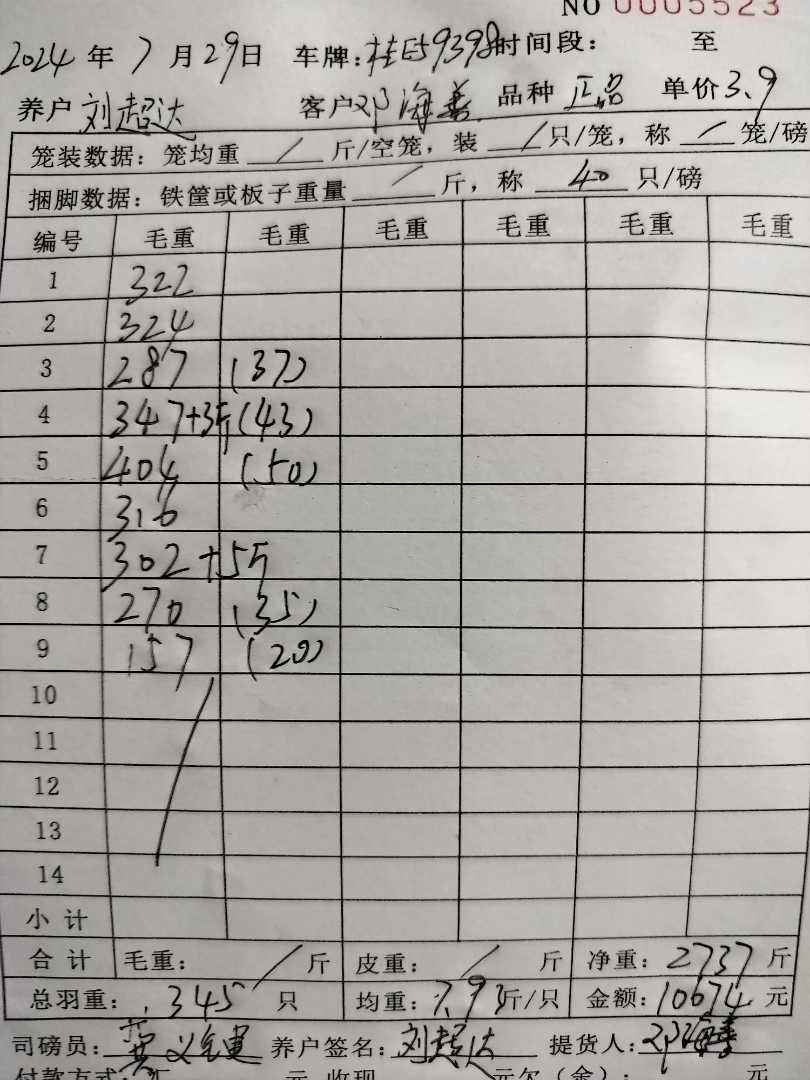 NO 0005523
2024 年 7 月 29 日 车牌:桂E59398 时间段: 至
养户 刘超达 客户 邓海善 品种 正品 单价 3.9
笼装数据:笼均重 / 斤/空笼,装 / 只/笼,称 / 笼/磅
捆脚数据:铁筐或板子重量 / 斤,称 40 只/磅
编号 毛重 毛重 毛重 毛重 毛重 毛重
1 322
2 324
3 287 (37)
4 347+3斤 (43)
5 404 (50)
6 316
7 302+5斤
8 270 (35)
9 157 (20)
10
11
12
13
14
小计
合计 毛重: / 斤 皮重: / 斤 净重: 2737 斤
总羽重: 345 只 均重: 7.93 斤/只 金额: 10674 元
司磅员: 养户签名: 刘超达 提货人: 邓海善
付款方式: 汇 元 收现 元欠(金): 元